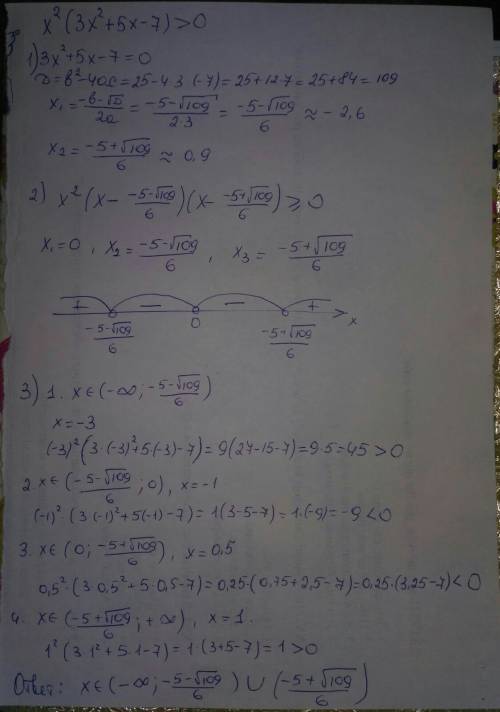 x²(3x²+5x-7)>0
1) 3x²+5x-7=0
D=b²-4ac=25-4·3·(-7)=25+12·7=25+84=109
x₁=(-b-√D)/2a=(-5-√109)/2·3=(-5-√109)/6≈-2,6
x₂=(-5+√109)/6≈0,9
2) x²(x-(-5-√109)/6)(x-(-5+√109)/6)≥0
x₁=0, x₂=(-5-√109)/6, x₃=(-5+√109)/6
+ − − +
(-5-√109)/6 0 (-5+√109)/6 x
3) 1. x∈(-∞; (-5-√109)/6)
x=-3
(-3)²(3·(-3)²+5·(-3)-7)=9(27-15-7)=9·5=45>0
2. x∈((-5-√109)/6; 0), x=-1
(-1)²·(3·(-1)²+5(-1)-7)=1(3-5-7)=1·(-9)=-9<0
3. x∈(0; (-5+√109)/6), x=0,5
0,5²·(3·0,5²+5·0,5-7)=0,25·(0,75+2,5-7)=0,25·(3,25-7)<0
4. x∈((-5+√109)/6; +∞), x=1.
1²(3·1²+5·1-7)=1(3+5-7)=1>0
Ответ: x∈(-∞; (-5-√109)/6)∪((-5+√109)/6)